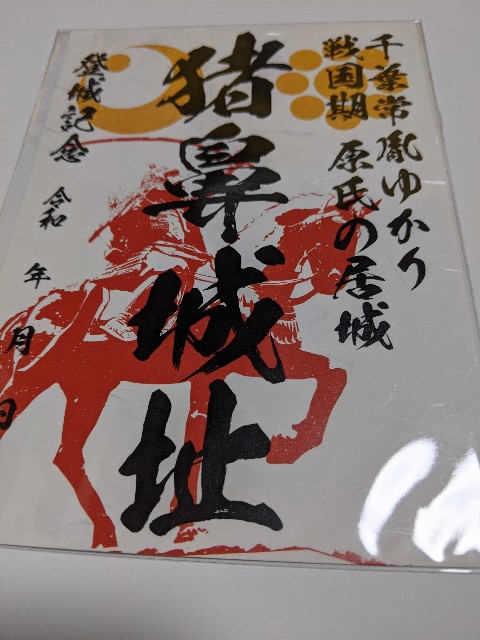 千葉常胤ゆかり
戦国期 原氏の居城
猪鼻城址
登城記念 令和 年 月 日